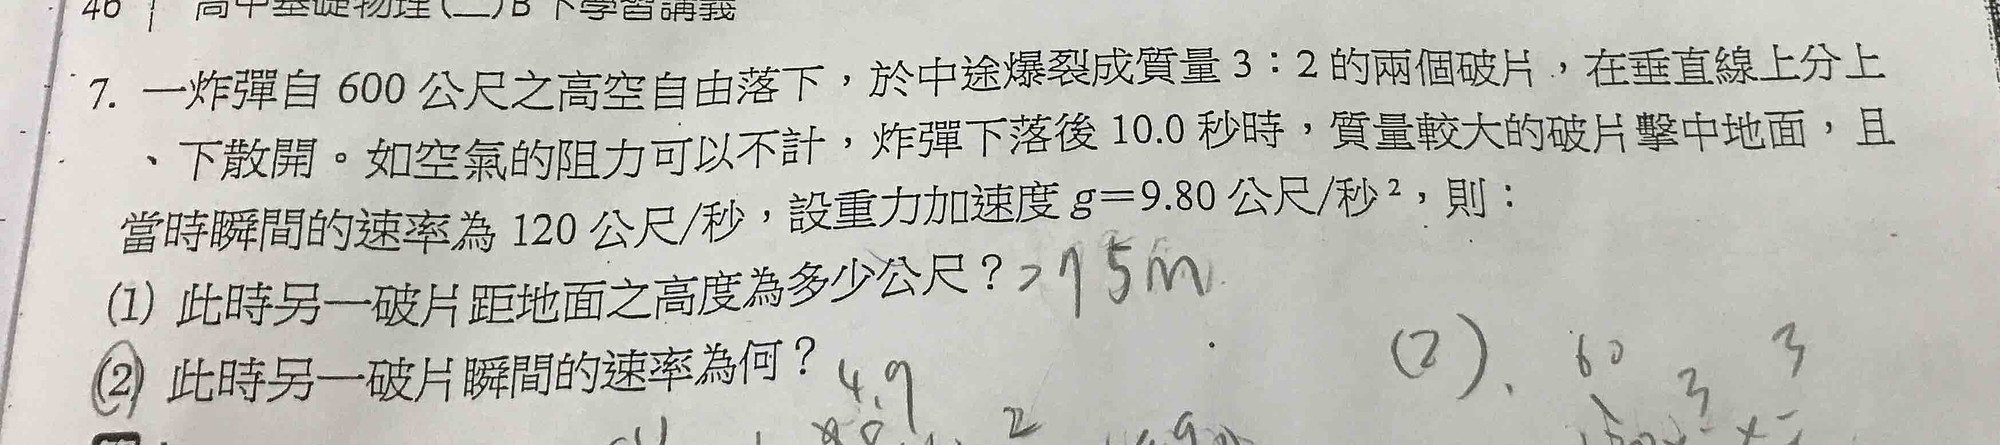 46 | 高中基礎物理(二)B下學習講義
7. 一炸彈自 600 公尺之高空自由落下，於中途爆裂成質量 3：2 的兩個破片，在垂直線上分上
、下散開。如空氣的阻力可以不計，炸彈下落後 10.0 秒時，質量較大的破片擊中地面，且
當時瞬間的速率為 120 公尺/秒，設重力加速度 g＝9.80 公尺/秒²，則：
(1) 此時另一破片距地面之高度為多少公尺？275m
(2) 此時另一破片瞬間的速率為何？
(2). 60 3 3
4.9
2